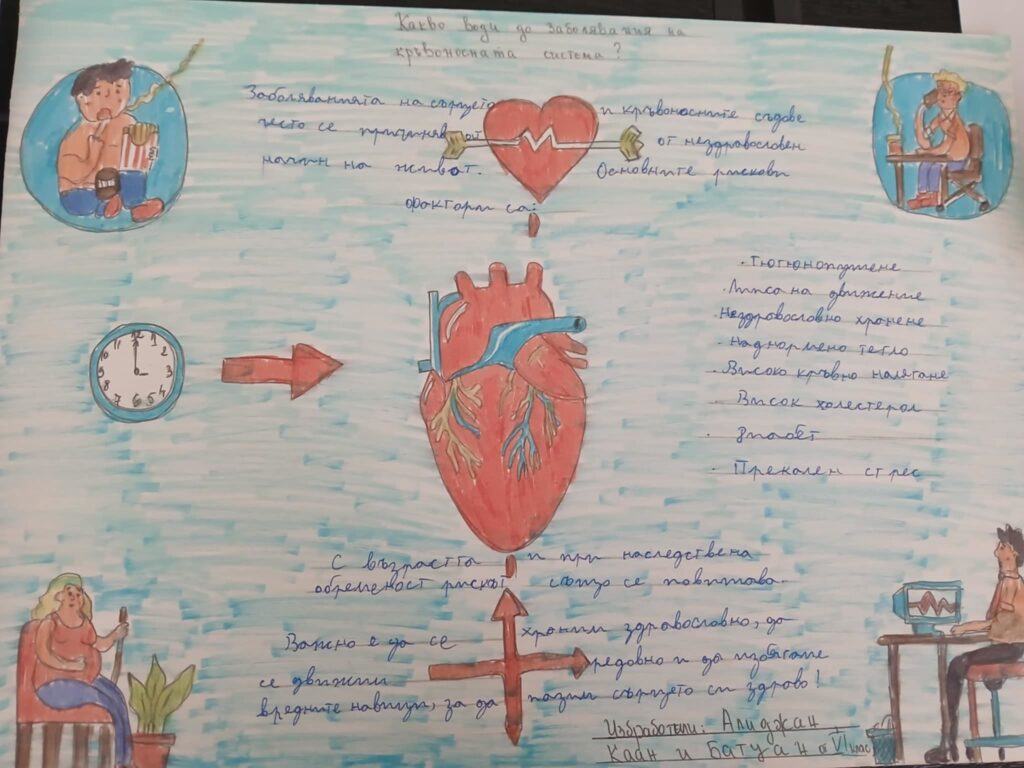 Какво води до заболявания на
кръвоносната система?
Заболяванията на сърцето и кръвоносните съдове
често се причиняват от нездравословен
начин на живот. Основните рискови
фактори са:
12
11 1
10 2
9 3
8 4
7 6 5
· Тютюнопушене
· Липса на движение
· Нездравословно хранене
· Наднормено тегло
· Високо кръвно налягане
· Висок холестерол
· Диабет
· Прекален стрес
С възрастта и при наследствена
обременост рискът също се повишава.
Важно е да се храним здравословно, да
се движим редовно и да избягаме
вредните навици, за да пазим сърцето си здраво!
Изработили: Алиджан
Каан и Батуан от VI клас